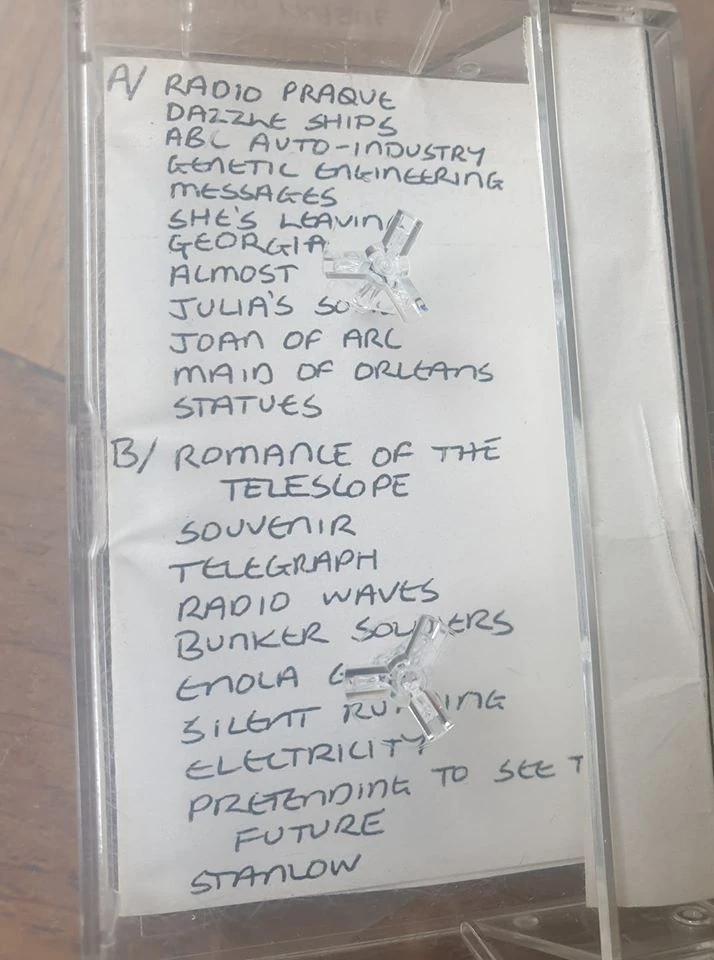 A/ RADIO PRAQUE
DAZZLE SHIPS
ABC AUTO-INDUSTRY
GENETIC ENGINEERING
MESSAGES
SHE'S LEAVING
GEORGIA
ALMOST
JULIA'S
JOAN OF ARC
MAID OF ORLEANS
STATUES
B/ ROMANCE OF THE
TELESCOPE
SOUVENIR
TELEGRAPH
RADIO WAVES
BUNKER SOLDIERS
ENOLA
SILENT RUNNING
ELECTRICITY
PRETENDING TO SEE T
FUTURE
STANLOW